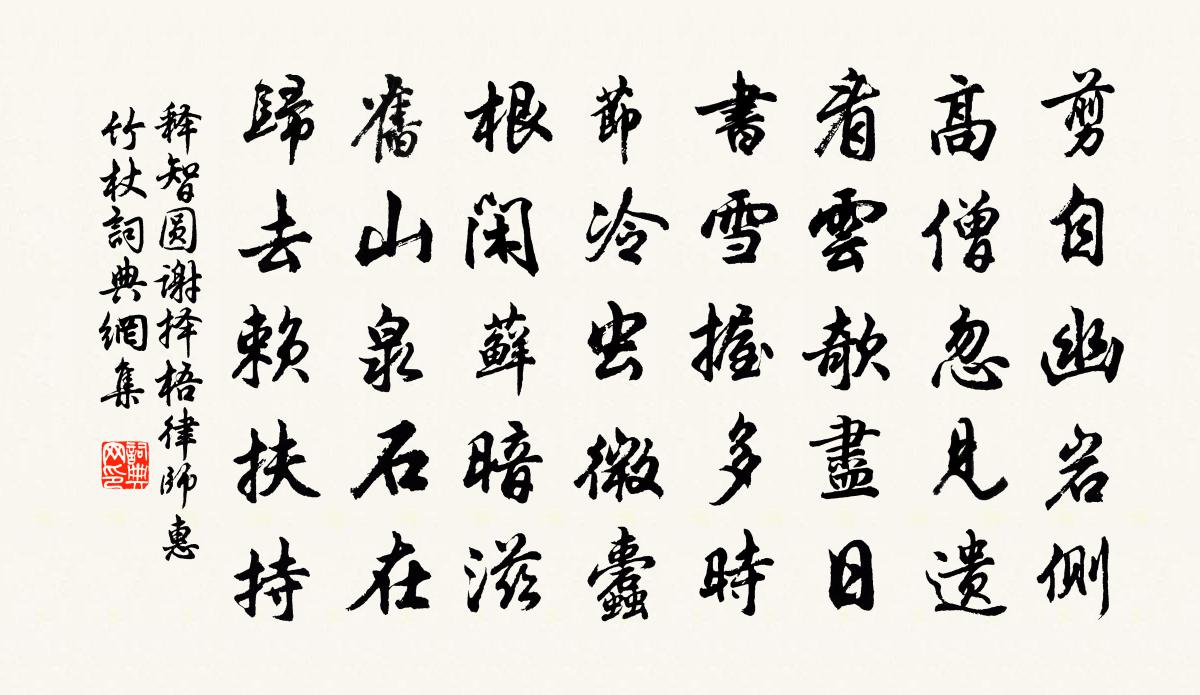 剪自幽岩側
高僧忽見遺
看雲欹盡日
書雪握多時
節冷虫微蠹
根閑蘚暗滋
舊山泉石在
歸去賴扶持
释智圆谢择梧律師惠
竹杖詞典網集
詞典
网印